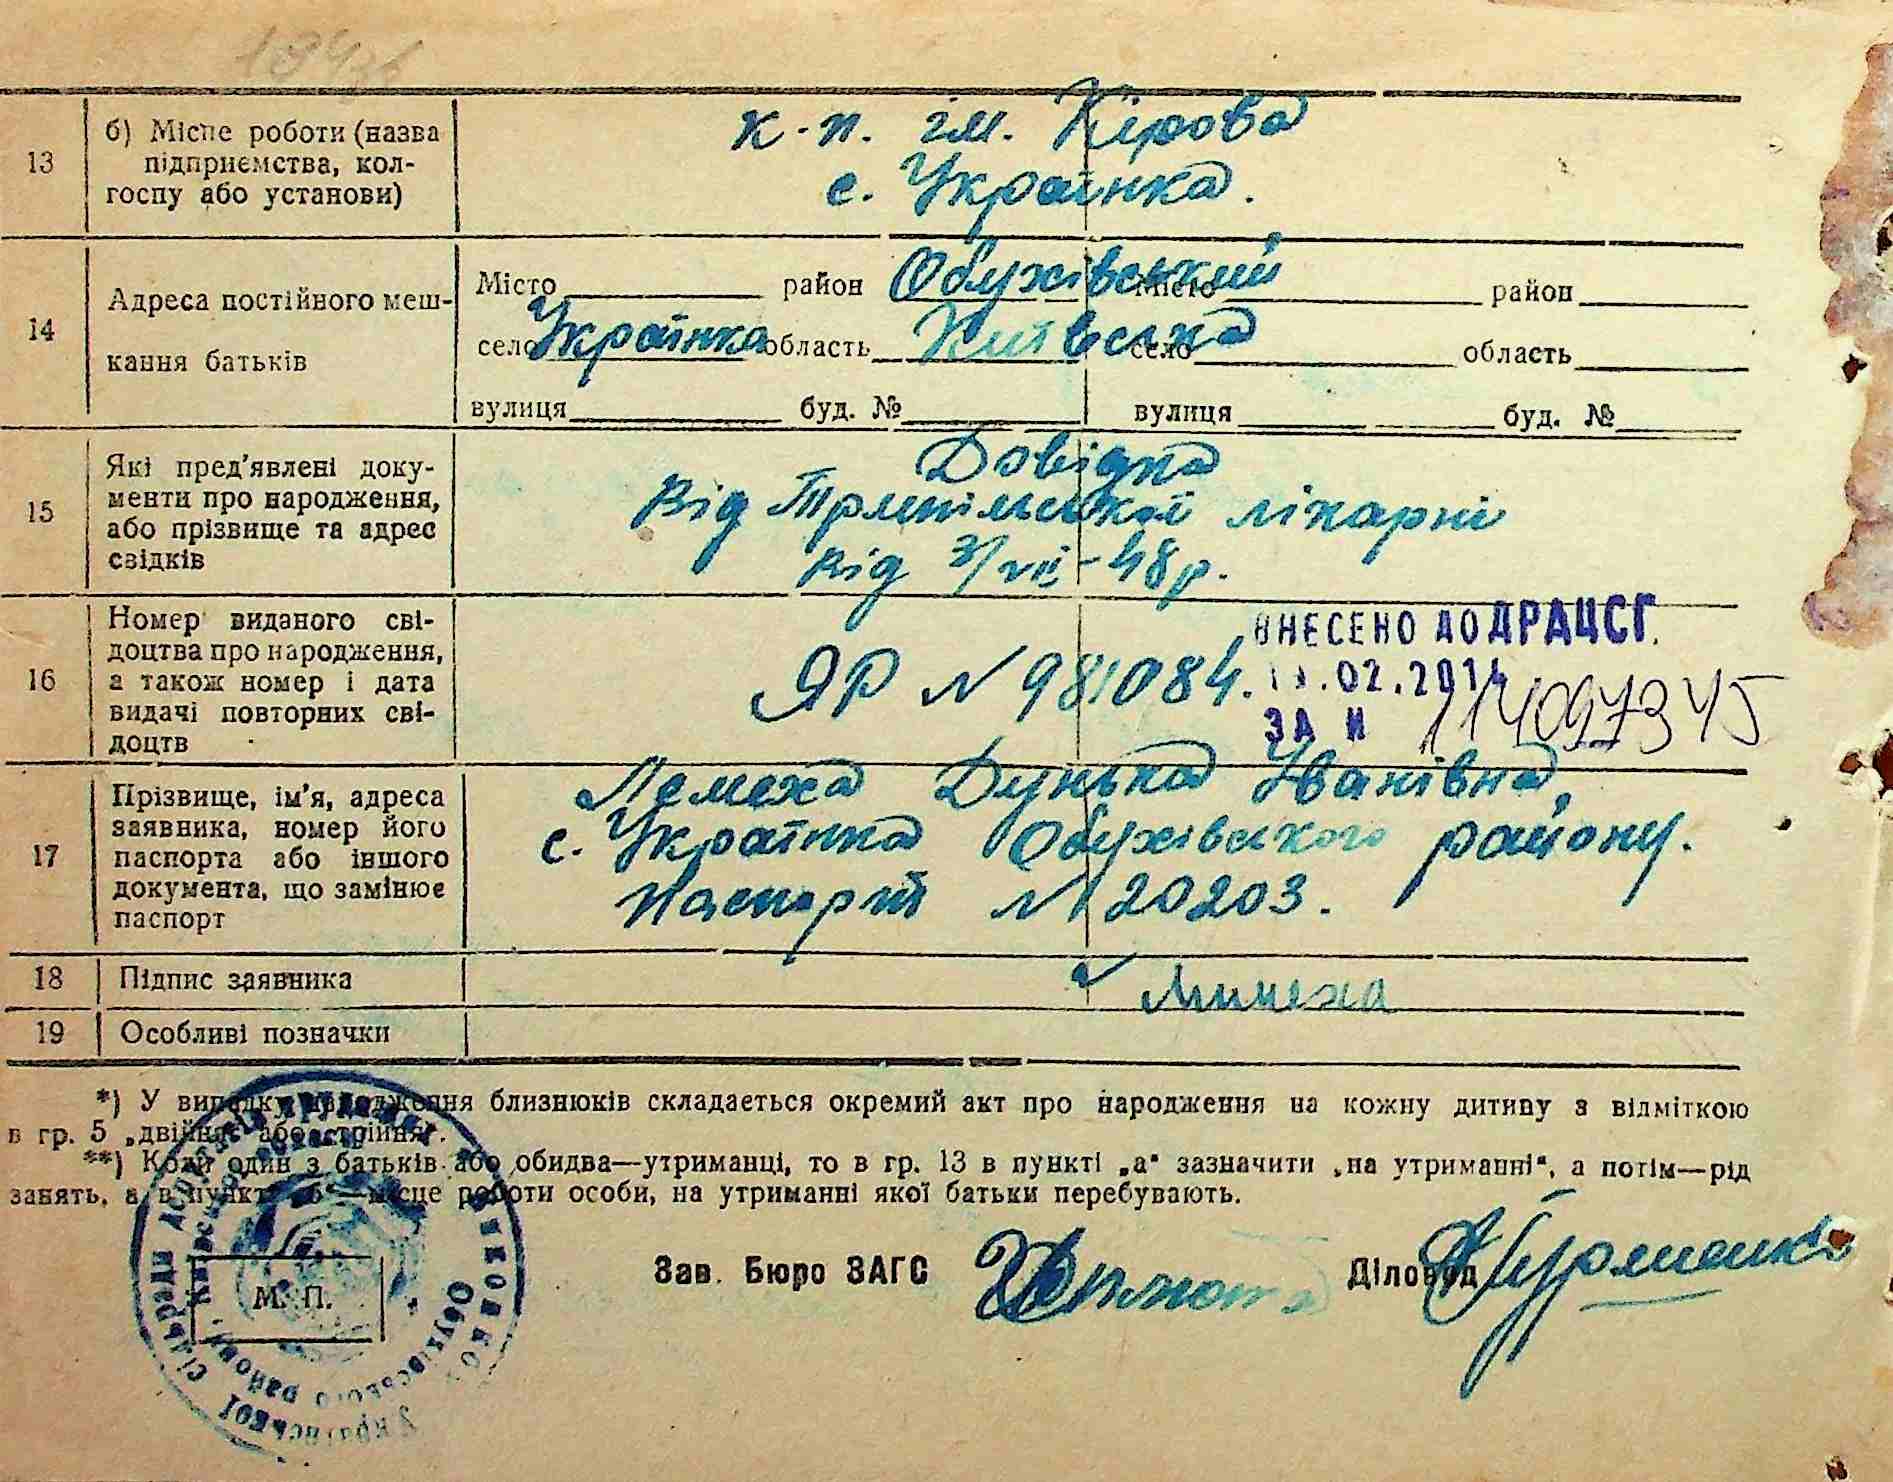 13
б) Місце роботи (назва
підприємства, кол-
госпу або установи)
к-п. ім. Кірова
с. Українка.
14
Адреса постійного меш-
кання батьків
Місто район Обухівський Місто район
село Українка область Київська село область
вулиця буд. № вулиця буд. №
15
Які пред'явлені доку-
менти про народження,
або прізвище та адрес
свідків
Довідка
від Трипільської лікарні
від 3/VII-48 р.
16
Номер виданого сві-
доцтва про народження,
а також номер і дата
видачі повторних сві-
доцтв
ЯР № 981084.
ВНЕСЕНО ДО ДРАЦСГ.
.02.2014
ЗА № 114097345
17
Прізвище, ім'я, адреса
заявника, номер його
паспорта або іншого
документа, що замінює
паспорт
Лемеха Дунька Іванівна,
с. Українка Обухівського району.
Паспорт № 20203.
18
Підпис заявника
19
Особливі позначки
*) У випадку народження близнюків складається окремий акт про народження на кожну дитину з відміткою
в гр. 5 „двійня" або „трійня".
**) Коли один з батьків або обидва—утриманці, то в гр. 13 в пункті „а" зазначити „на утриманні", а потім—рід
занять, а в пункті „б"—місце роботи особи, на утриманні якої батьки перебувають.
Зав. Бюро ЗАГС
Діловод
М. П.